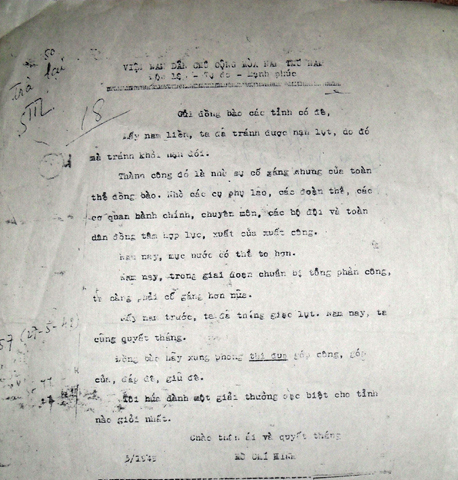 Trả lại
5III
18
VIỆT NAM DÂN CHỦ CỘNG HÒA NĂM THỨ NĂM
Độc lập - Tự do - Hạnh phúc
Gửi đồng bào các tỉnh có đê,
Mấy năm liền, ta đã tránh được nạn lụt, do đó
mà tránh khỏi nạn đói.
Thành công đó là nhờ sự cố gắng chung của toàn
thể đồng bào. Nhờ các cụ phụ lão, các đoàn thể, các
cơ quan hành chính, chuyên môn, các bộ đội và toàn
dân đồng tâm hợp lực, xuất của xuất công.
Năm nay, mực nước có thể to hơn.
Năm nay, trong giai đoạn chuẩn bị tổng phản công,
ta càng phải cố gắng hơn nữa.
Mấy năm trước, ta đã thắng giặc lụt. Năm nay, ta
cũng quyết thắng.
Đồng bào hãy xung phong thi đua góp công, góp
của, đắp đê, giữ đê.
Tôi hứa dành một giải thưởng đặc biệt cho tỉnh
nào giỏi nhất.
Chào thân ái và quyết thắng
5/1949 HỒ CHÍ MINH